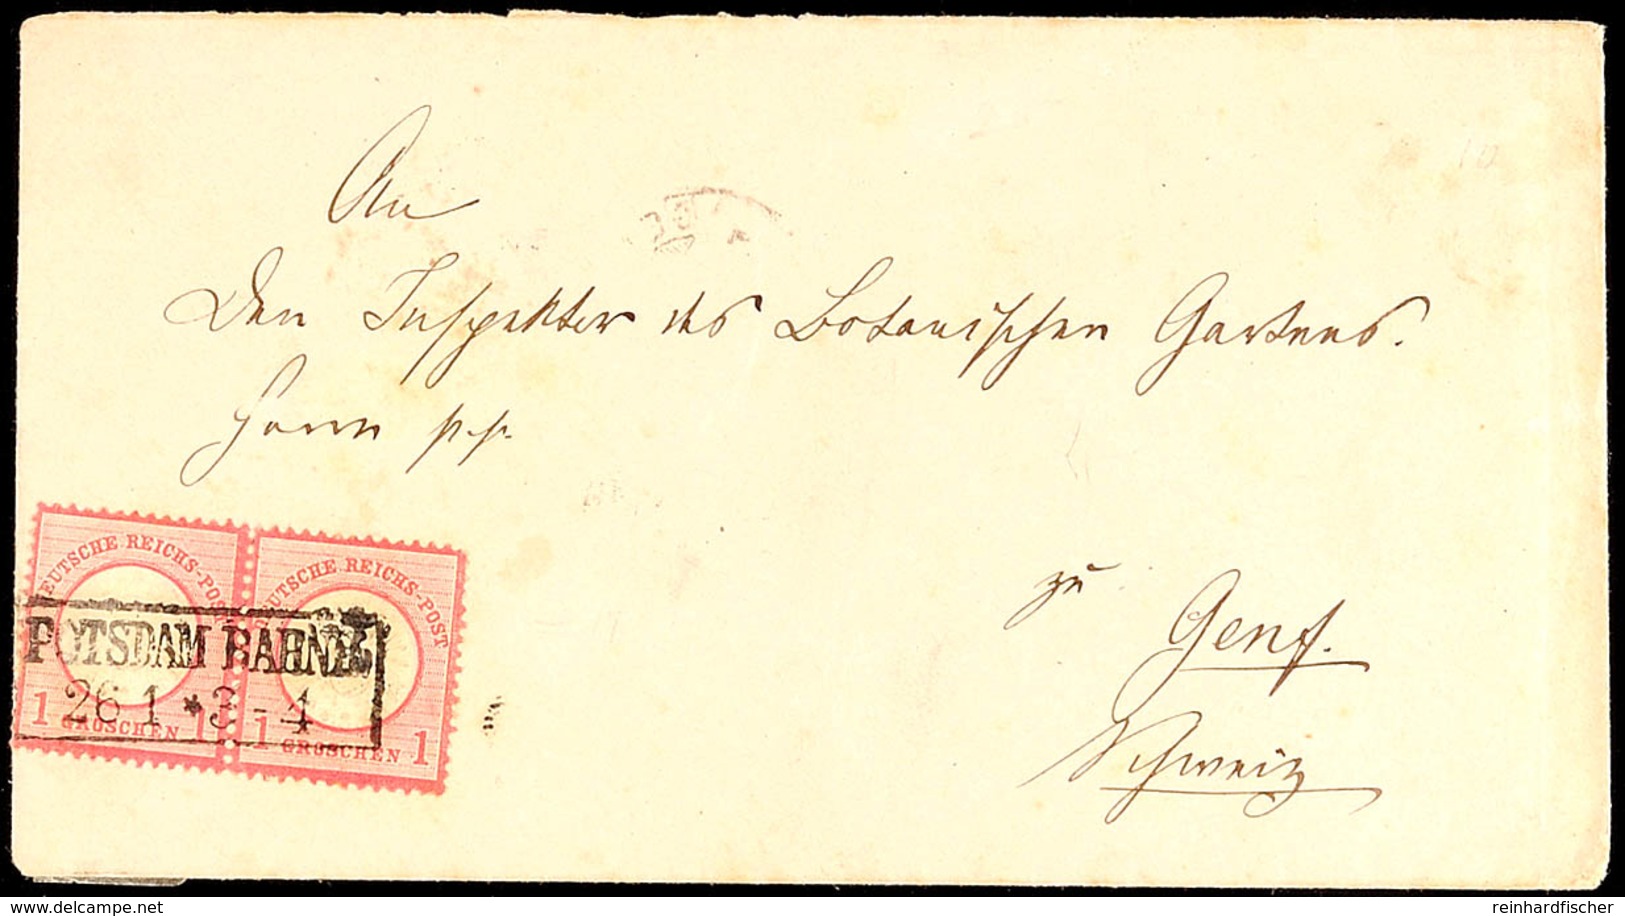 An
Den Inspektor des Botanischen Gartens.
Herrn p.p.
DEUTSCHE REICHS-POST
DEUTSCHE REICHS-POST
POTSDAM BAHNH.
26 1 * 3 - 4
1 GROSCHEN 1
1 GROSCHEN 1
zu
Genf.
Schweiz
www.delcampe.net
reinhardfischer